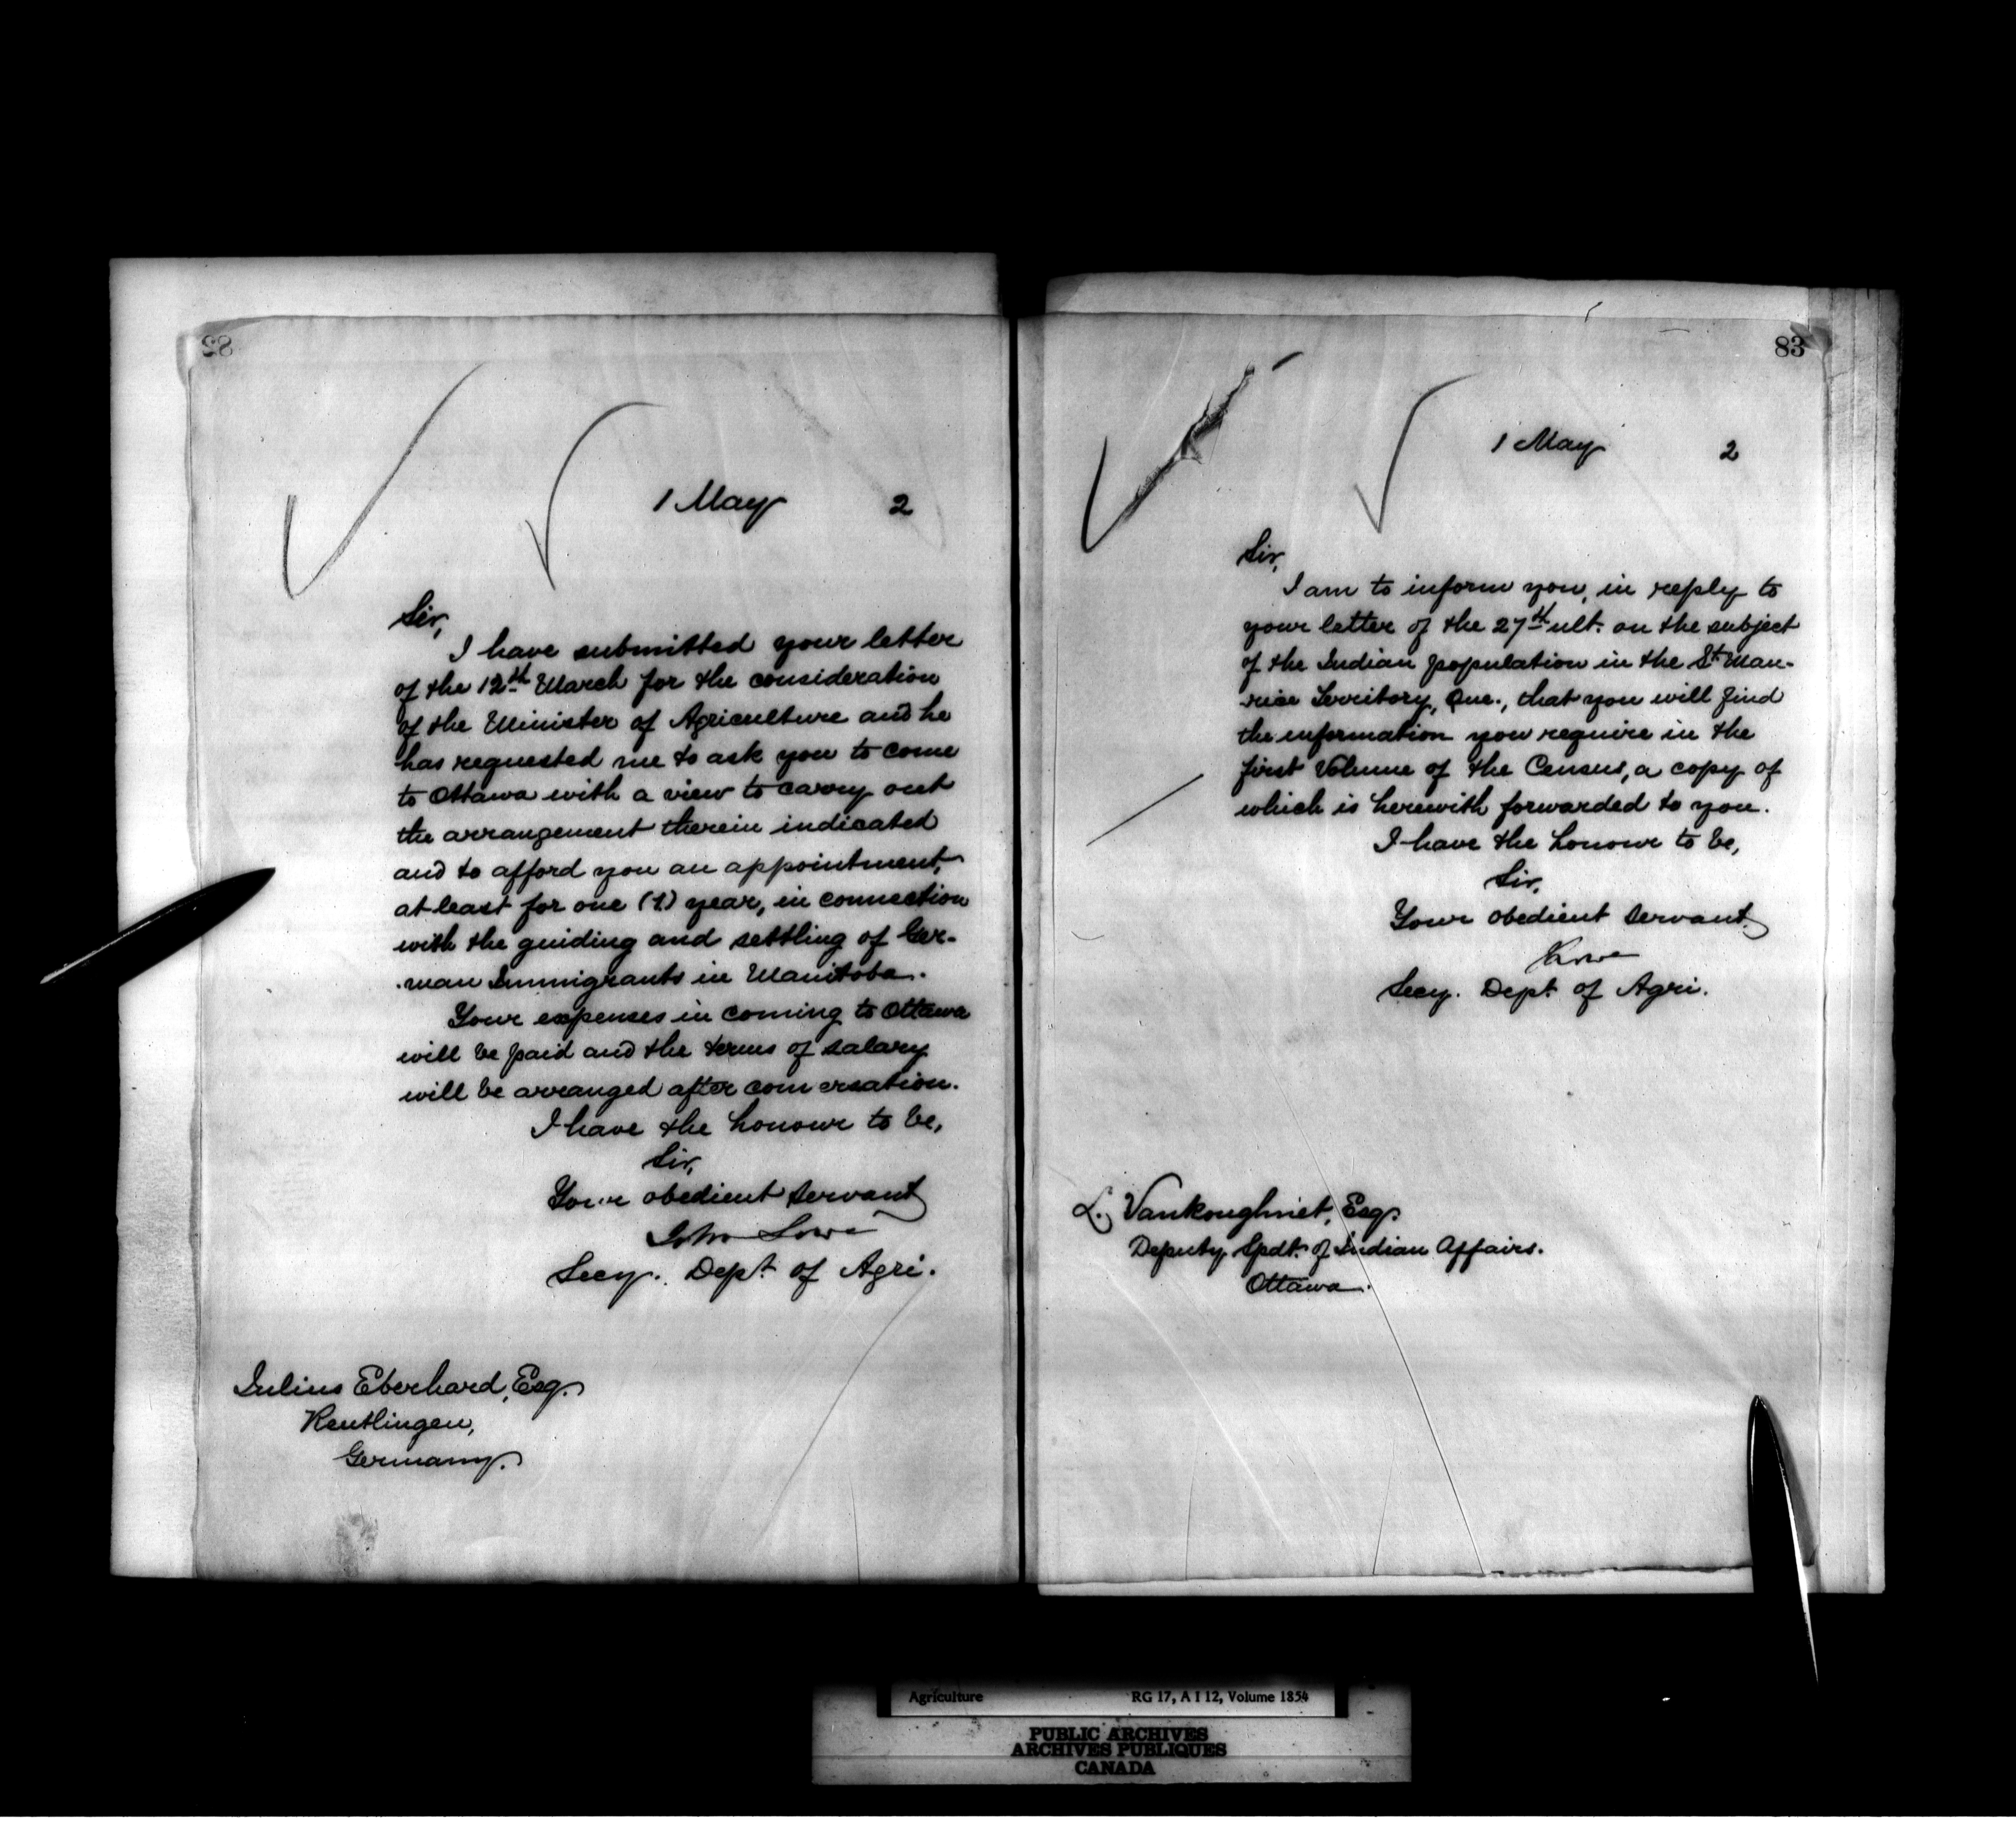 82
1 May 2
Sir,
I have submitted your letter
of the 12th March for the consideration
of the Minister of Agriculture and he
has requested me to ask you to come
to Ottawa with a view to carry out
the arrangement therein indicated
and to afford you an appointment,
at least for one (1) year, in connection
with the guiding and settling of Ger-
-man Immigrants in Manitoba.
Your expenses in coming to Ottawa
will be paid and the terms of salary
will be arranged after conversation.
I have the honour to be,
Sir,
Your obedient servant
John Lowe
Secy. Dept. of Agri.
Julius Eberhard, Esq.
Reutlingen,
Germany.
83
1 May 2
Sir,
I am to inform you, in reply to
your letter of the 27th ult. on the subject
of the Indian population in the St. Mau-
-rice Territory, Que., that you will find
the information you require in the
first Volume of the Census, a copy of
which is herewith forwarded to you.
I have the honour to be,
Sir,
Your obedient servant
Lowe
Secy. Dept. of Agri.
L. Vankoughniet, Esq.
Deputy Spdt. of Indian Affairs.
Ottawa.
Agriculture RG 17, A I 12, Volume 1854
PUBLIC ARCHIVES
ARCHIVES PUBLIQUES
CANADA